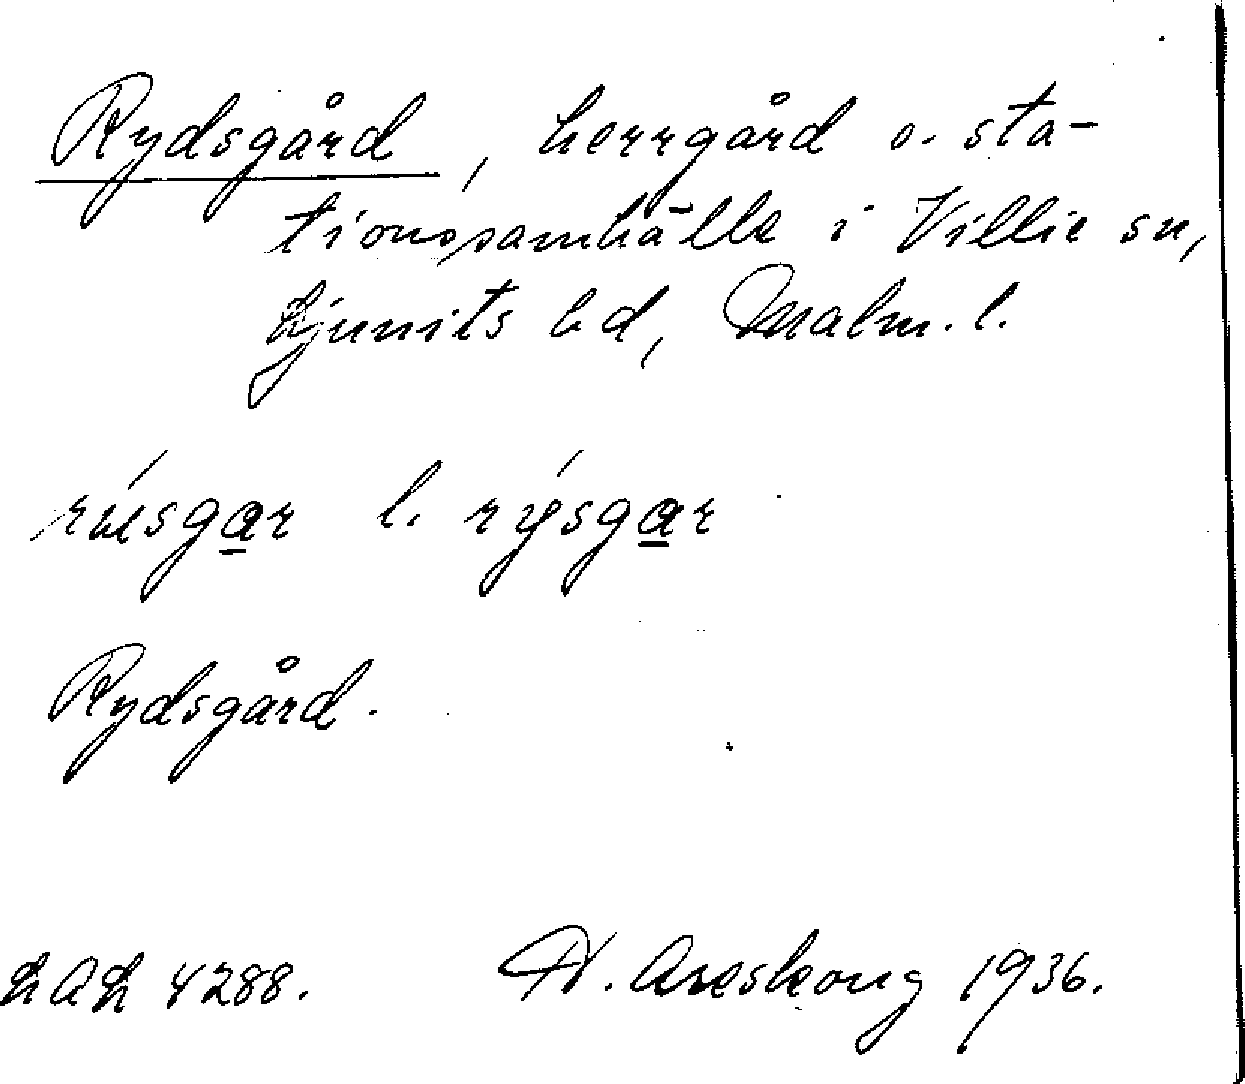 Rydsgård, herrgård o. sta-
tionssamhälle i Villie sn,
Ljunits hd, Malm. l.
rúsgar l. rýsgar
Rydsgård.
LAL 4288. H. Areskoug 1936.